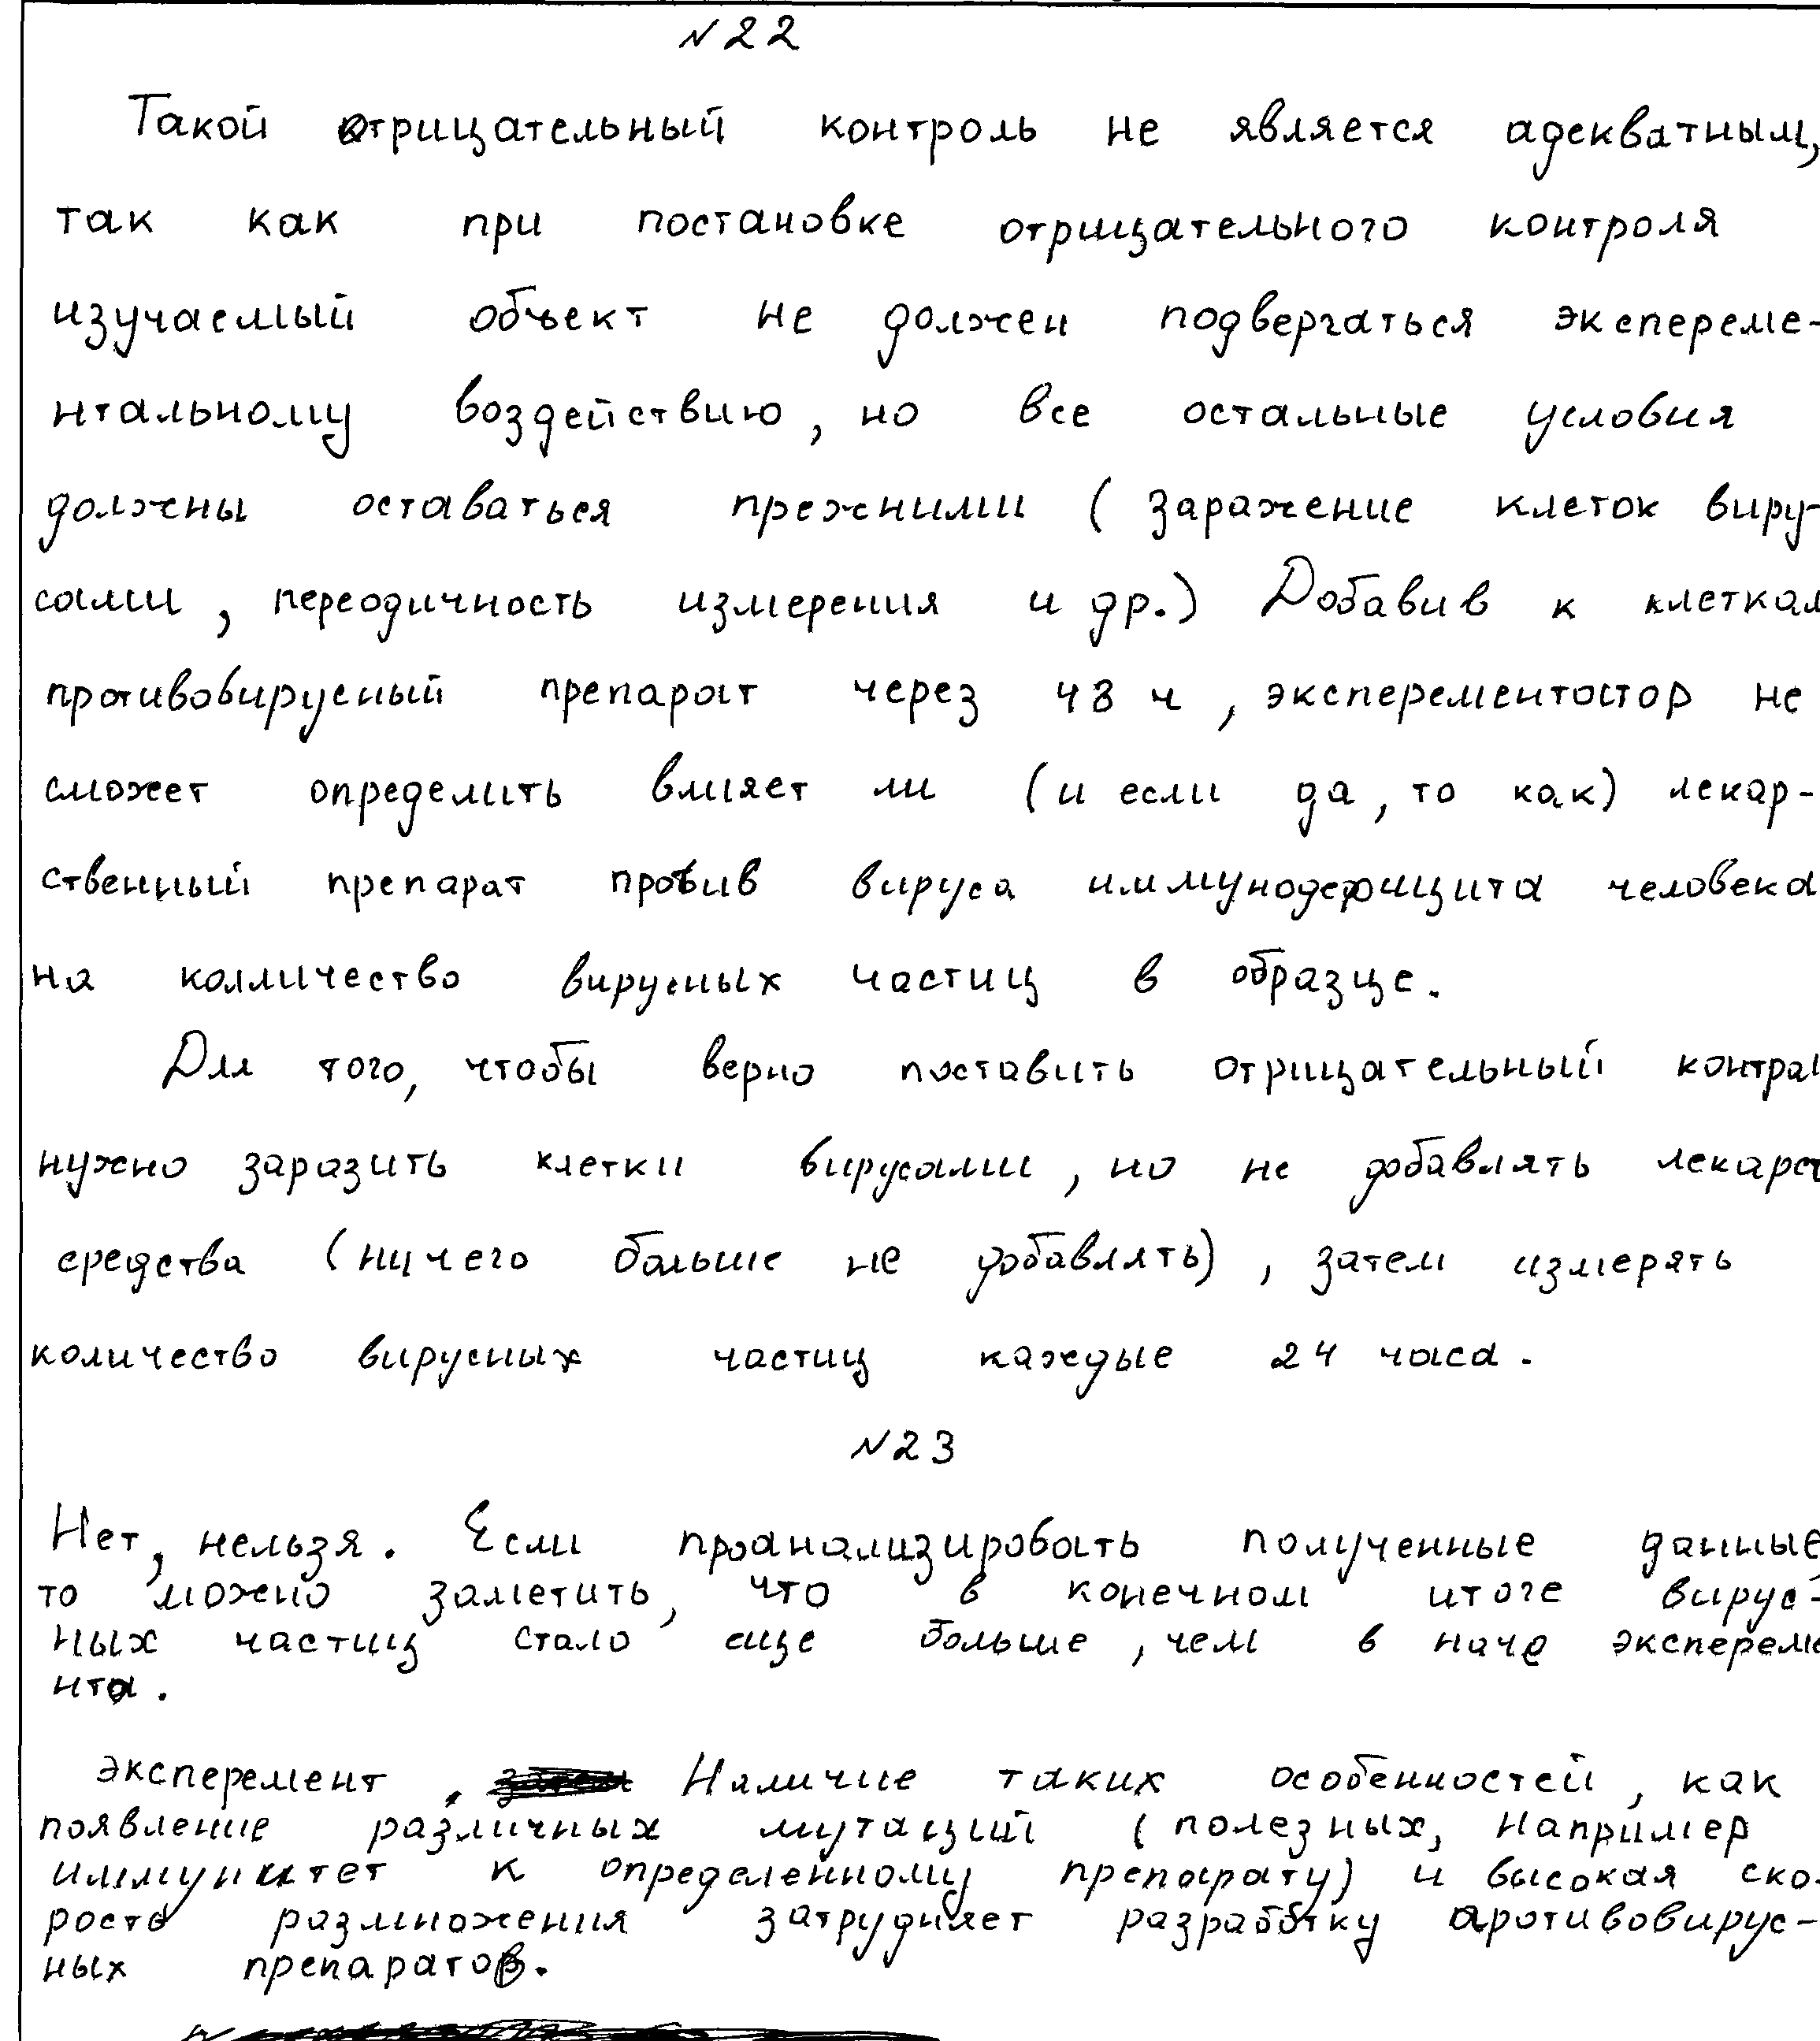 №22
Такой отрицательный контроль не является адекватным,
так как при постановке отрицательного контроля
изучаемый объект не должен подвергаться эксперeме-
нтальному воздействию, но все остальные условия
должны оставаться прежними (заражение клеток виру-
сами, переодичность измерения и др.) Добавив к клеткам
противовирусный препарат через 48 ч, эксперементатор не
сможет определить влияет ли (и если да, то как) лекар-
ственный препарат против вируса иммунодефицита человека
на колличество вирусных частиц в образце.
Для того, чтобы верно поставить отрицательный контрол
нужно заразить клетки вирусами, но не добавлять лекарст
средства (ничего больше не добавлять), затем измерять
количество вирусных частиц каждые 24 часа.
№23
Нет, нельзя. Если проанализировать полученные данные,
то можно заметить, что в конечном итоге вирус-
ных частиц стало еще больше, чем в наче экспереме
нта.
эксперемент. Наличие таких особенностей, как
появление различных мутаций (полезных, например
иммунитет к определенному препарату) и высокая ско-
рость размножения затрудняет разработку противовирус-
ных препаратов.